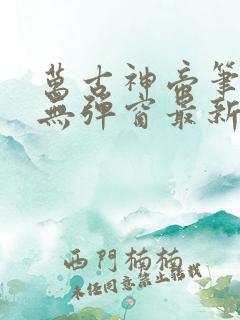 萬古神帝筆
無彈窗最新
西門楠楠
未經同意禁止轉載